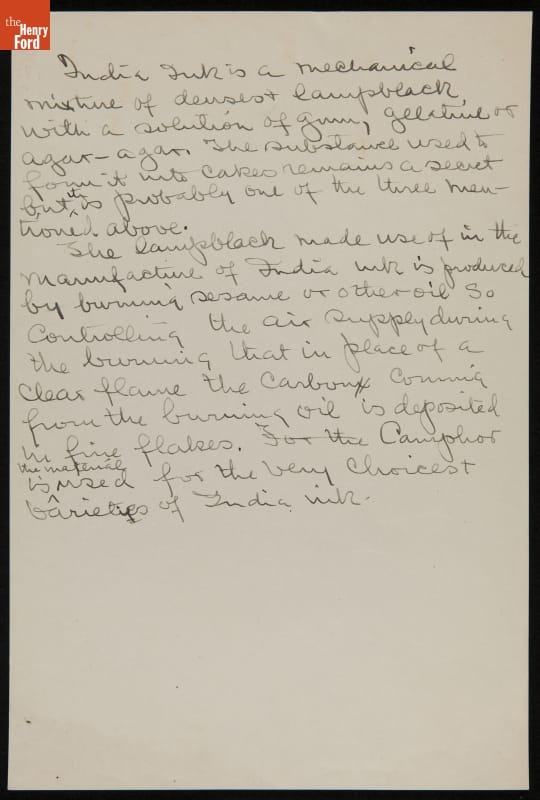 the
Henry
Ford
India Ink is a mechanical
mixture of densest lampblack
with a solution of gum, gelatine or
agar-agar. The substance used to
form it into cakes remains a secret
but it is probably one of the three men-
tioned above.
The lampblack made use of in the
manufacture of India ink is produced
by burning sesame or other oil so
controlling the air supply during
the burning that in place of a
clear flame the carbon coming
from the burning oil is deposited
in fine flakes. For the Camphor
is the material used for the very choicest
varieties of India ink.